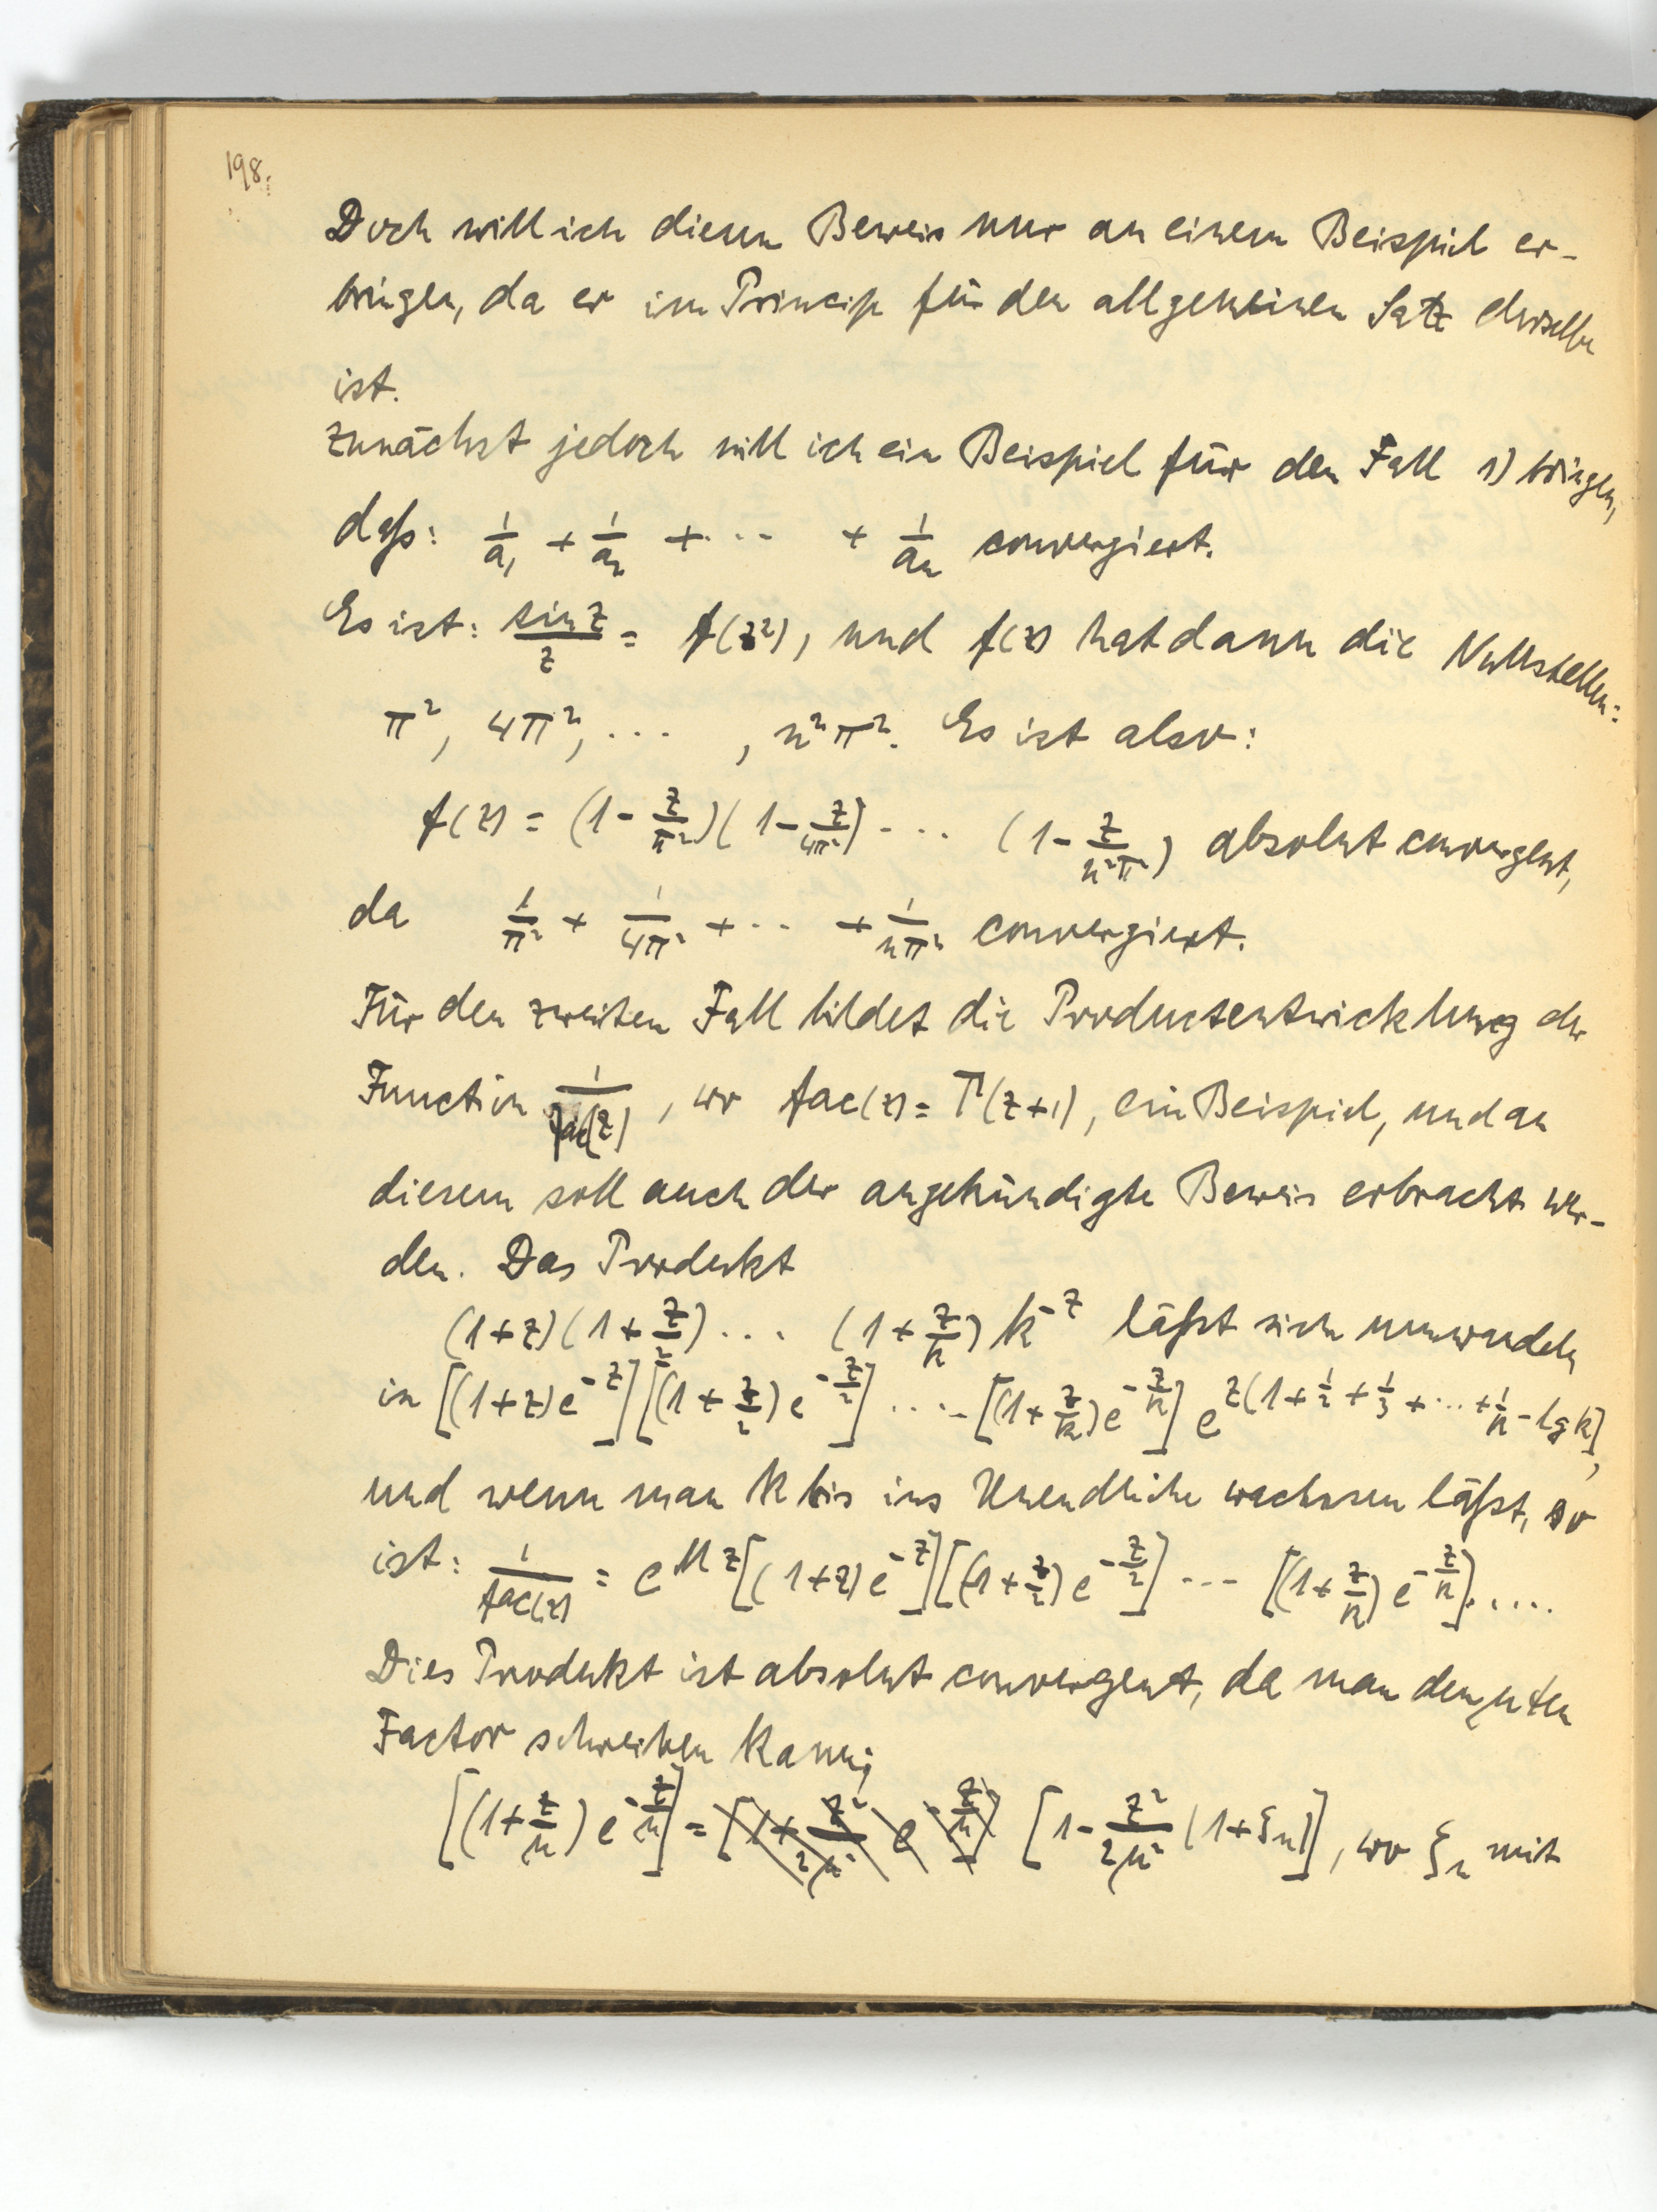 198.
Doch will ich diesen Beweis nur an einem Beispiel er-
bringen, da er im Princip für den allgemeinen Satz derselbe
ist.
Zunächst jedoch will ich ein Beispiel für den Fall 1) bringen,
daß: 1/a₁ + 1/a₂ + ... + 1/aₙ convergiert.
Es ist: sin z/z = f(z²), und f(z) hat dann die Nullstellen:
π², 4π², ... , n²π². Es ist also:
f(z) = (1 - z/π²)(1 - z/4π²) ... (1 - z/n²π²) absolut convergent,
da 1/π² + 1/4π² + ... + 1/nπ² convergiert.
Für den zweiten Fall bildet die Productentwicklung der
Function 1/fac(z), wo fac(z) = Γ(z+1), ein Beispiel, und an
diesem soll auch der angekündigte Beweis erbracht wer-
den. Das Produkt
(1+z)(1+z/2) ... (1+z/k) k^-z läßt sich umwandeln
in [(1+z)e^-z][(1+z/2)e^-z/2] ..... [(1+z/k)e^-z/k] e^z(1+1/2+1/3+...+1/k-lg k],
und wenn man k bis ins Unendliche wachsen läßt, so
ist: 1/fac(z) = e^Mz[(1+z)e^-z][(1+z/2)e^-z/2] ... [(1+z/k)e^-z/k].....
Dies Produkt ist absolut convergent, da man den nten
Factor schreiben kann:
[(1+z/n)e^-z/n] = [1 - z²/2n² (1+ξₙ)], wo ξₙ mit